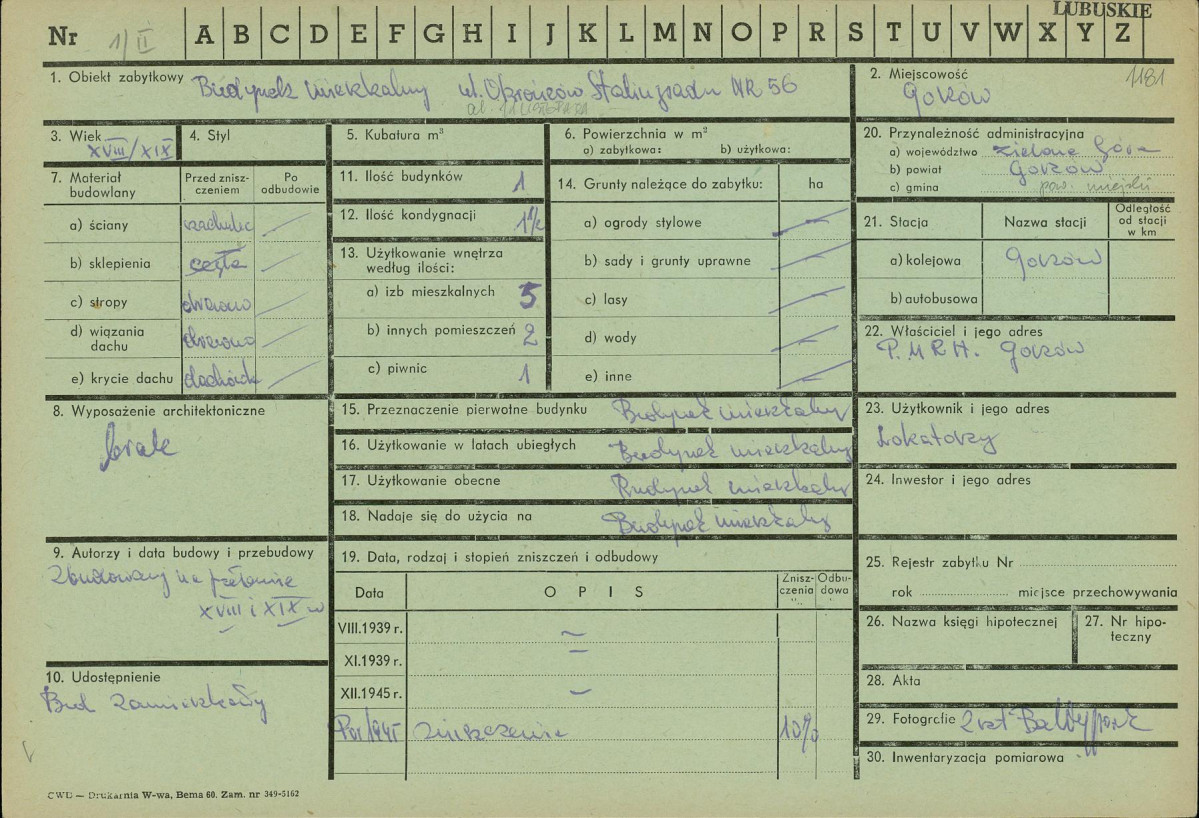 LUBUSKIE
Nr 1/II A B C D E F G H I J K L M N O P R S T U V W X Y Z
1. Obiekt zabytkowy Budynek mieszkalny ul. Obrońców Stalingradu NR 56
ob. 11 LISTOPADA
2. Miejscowość 1181
Gorzów
3. Wiek
XVIII/XIX
4. Styl
5. Kubatura m³
6. Powierzchnia w m²
a) zabytkowa: b) użytkowa:
20. Przynależność administracyjna
a) województwo zielona Góra
b) powiat Gorzów
c) gmina pow. miejski
7. Materiał budowlany
Przed zniszczeniem
Po odbudowie
a) ściany szachulec
b) sklepienia cegła
c) stropy drewno
d) wiązania dachu drewno
e) krycie dachu dachówk
11. Ilość budynków 1
12. Ilość kondygnacji 1 1/2
13. Użytkowanie wnętrza według ilości:
a) izb mieszkalnych 5
b) innych pomieszczeń 2
c) piwnic 1
14. Grunty należące do zabytku: ha
a) ogrody stylowe
b) sady i grunty uprawne
c) lasy
d) wody
e) inne
21. Stacja Nazwa stacji Odległość od stacji w km
a) kolejowa Gorzów
b) autobusowa
22. Właściciel i jego adres
P.M.R.H. Gorzów
8. Wyposażenie architektoniczne
brak
15. Przeznaczenie pierwotne budynku Budynek mieszkalny
16. Użytkowanie w latach ubiegłych Budynek mieszkalny
17. Użytkowanie obecne Budynek mieszkalny
18. Nadaje się do użycia na Budynek mieszkalny
23. Użytkownik i jego adres
Lokatorzy
24. Inwestor i jego adres
9. Autorzy i data budowy i przebudowy
Zbudowany na przełomie
XVIII i XIX w
19. Data, rodzaj i stopień zniszczeń i odbudowy
Data OPIS Zniszczenia "/, Odbudowa
VIII.1939 r. –
XI.1939 r. –
XII.1945 r. –
Po r/1945 zniszczenie 10%
25. Rejestr zabytku Nr
rok miejsce przechowywania
26. Nazwa księgi hipotecznej
27. Nr hipoteczny
10. Udostępnienie
Bud zamieszkały
28. Akta
29. Fotografie 2 szt
30. Inwentaryzacja pomiarowa
CWD — Drukarnia W-wa, Bema 60. Zam. nr 349-5162